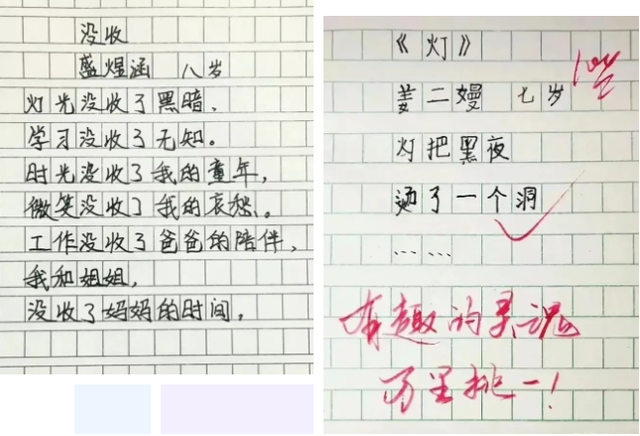 没收
盛煜涵 八岁
灯光没收了黑暗，
学习没收了无知。
时光没收了我的童年，
微笑没收了我的哀愁。
工作没收了爸爸的陪伴，
我和姐姐，
没收了妈妈的时间。
《灯》
姜二嫚 七岁
灯把黑夜
烫了一个洞
……
有趣的灵魂
万里挑一！